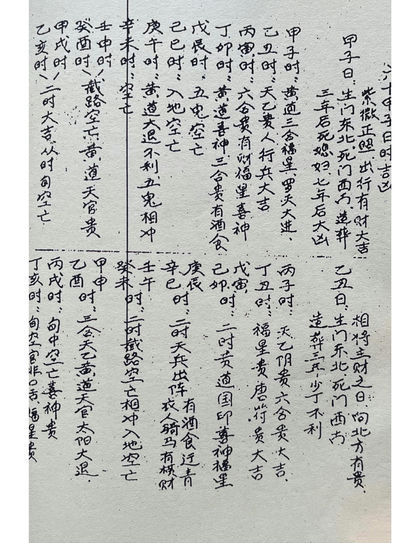 六十甲子日时吉凶
紫微正照出行有财大吉
甲子日:生门东北,死门西南,造葬
三年后死媳妇七年后大凶
甲子时:黄道三合福星,罗天大进,
乙丑时:天乙贵人行兵大吉
丙寅时:六合贵有财福星喜神
丁卯时:黄道喜神三合贵有酒食
戊辰时:五鬼空亡
己巳时:入地空亡
庚午时:黄道大退不利五鬼相冲
辛未时:空亡
壬申时
癸酉时 截路空亡,黄道天官贵
甲戌时
乙亥时 二时大吉,从时旬空亡
相将主财之日向北方有贵,
乙丑日:生门东北,死门西南
造葬三年少丁不利
丙子时:天乙阴贵六合贵大吉,
丁丑时:福星贵唐符贵大吉
戊寅
己卯时:二时贵道国印喜神福星
庚辰 有酒食迁青
辛巳时:二时天兵出阵衣骑马有横财
壬午
癸未时:二时截路空亡相冲入地空亡
甲申
乙酉时:三合天乙黄道天官太阳大退,
丙戌时:旬中空亡喜神贵
丁亥时:旬大空官非口舌,福星贵